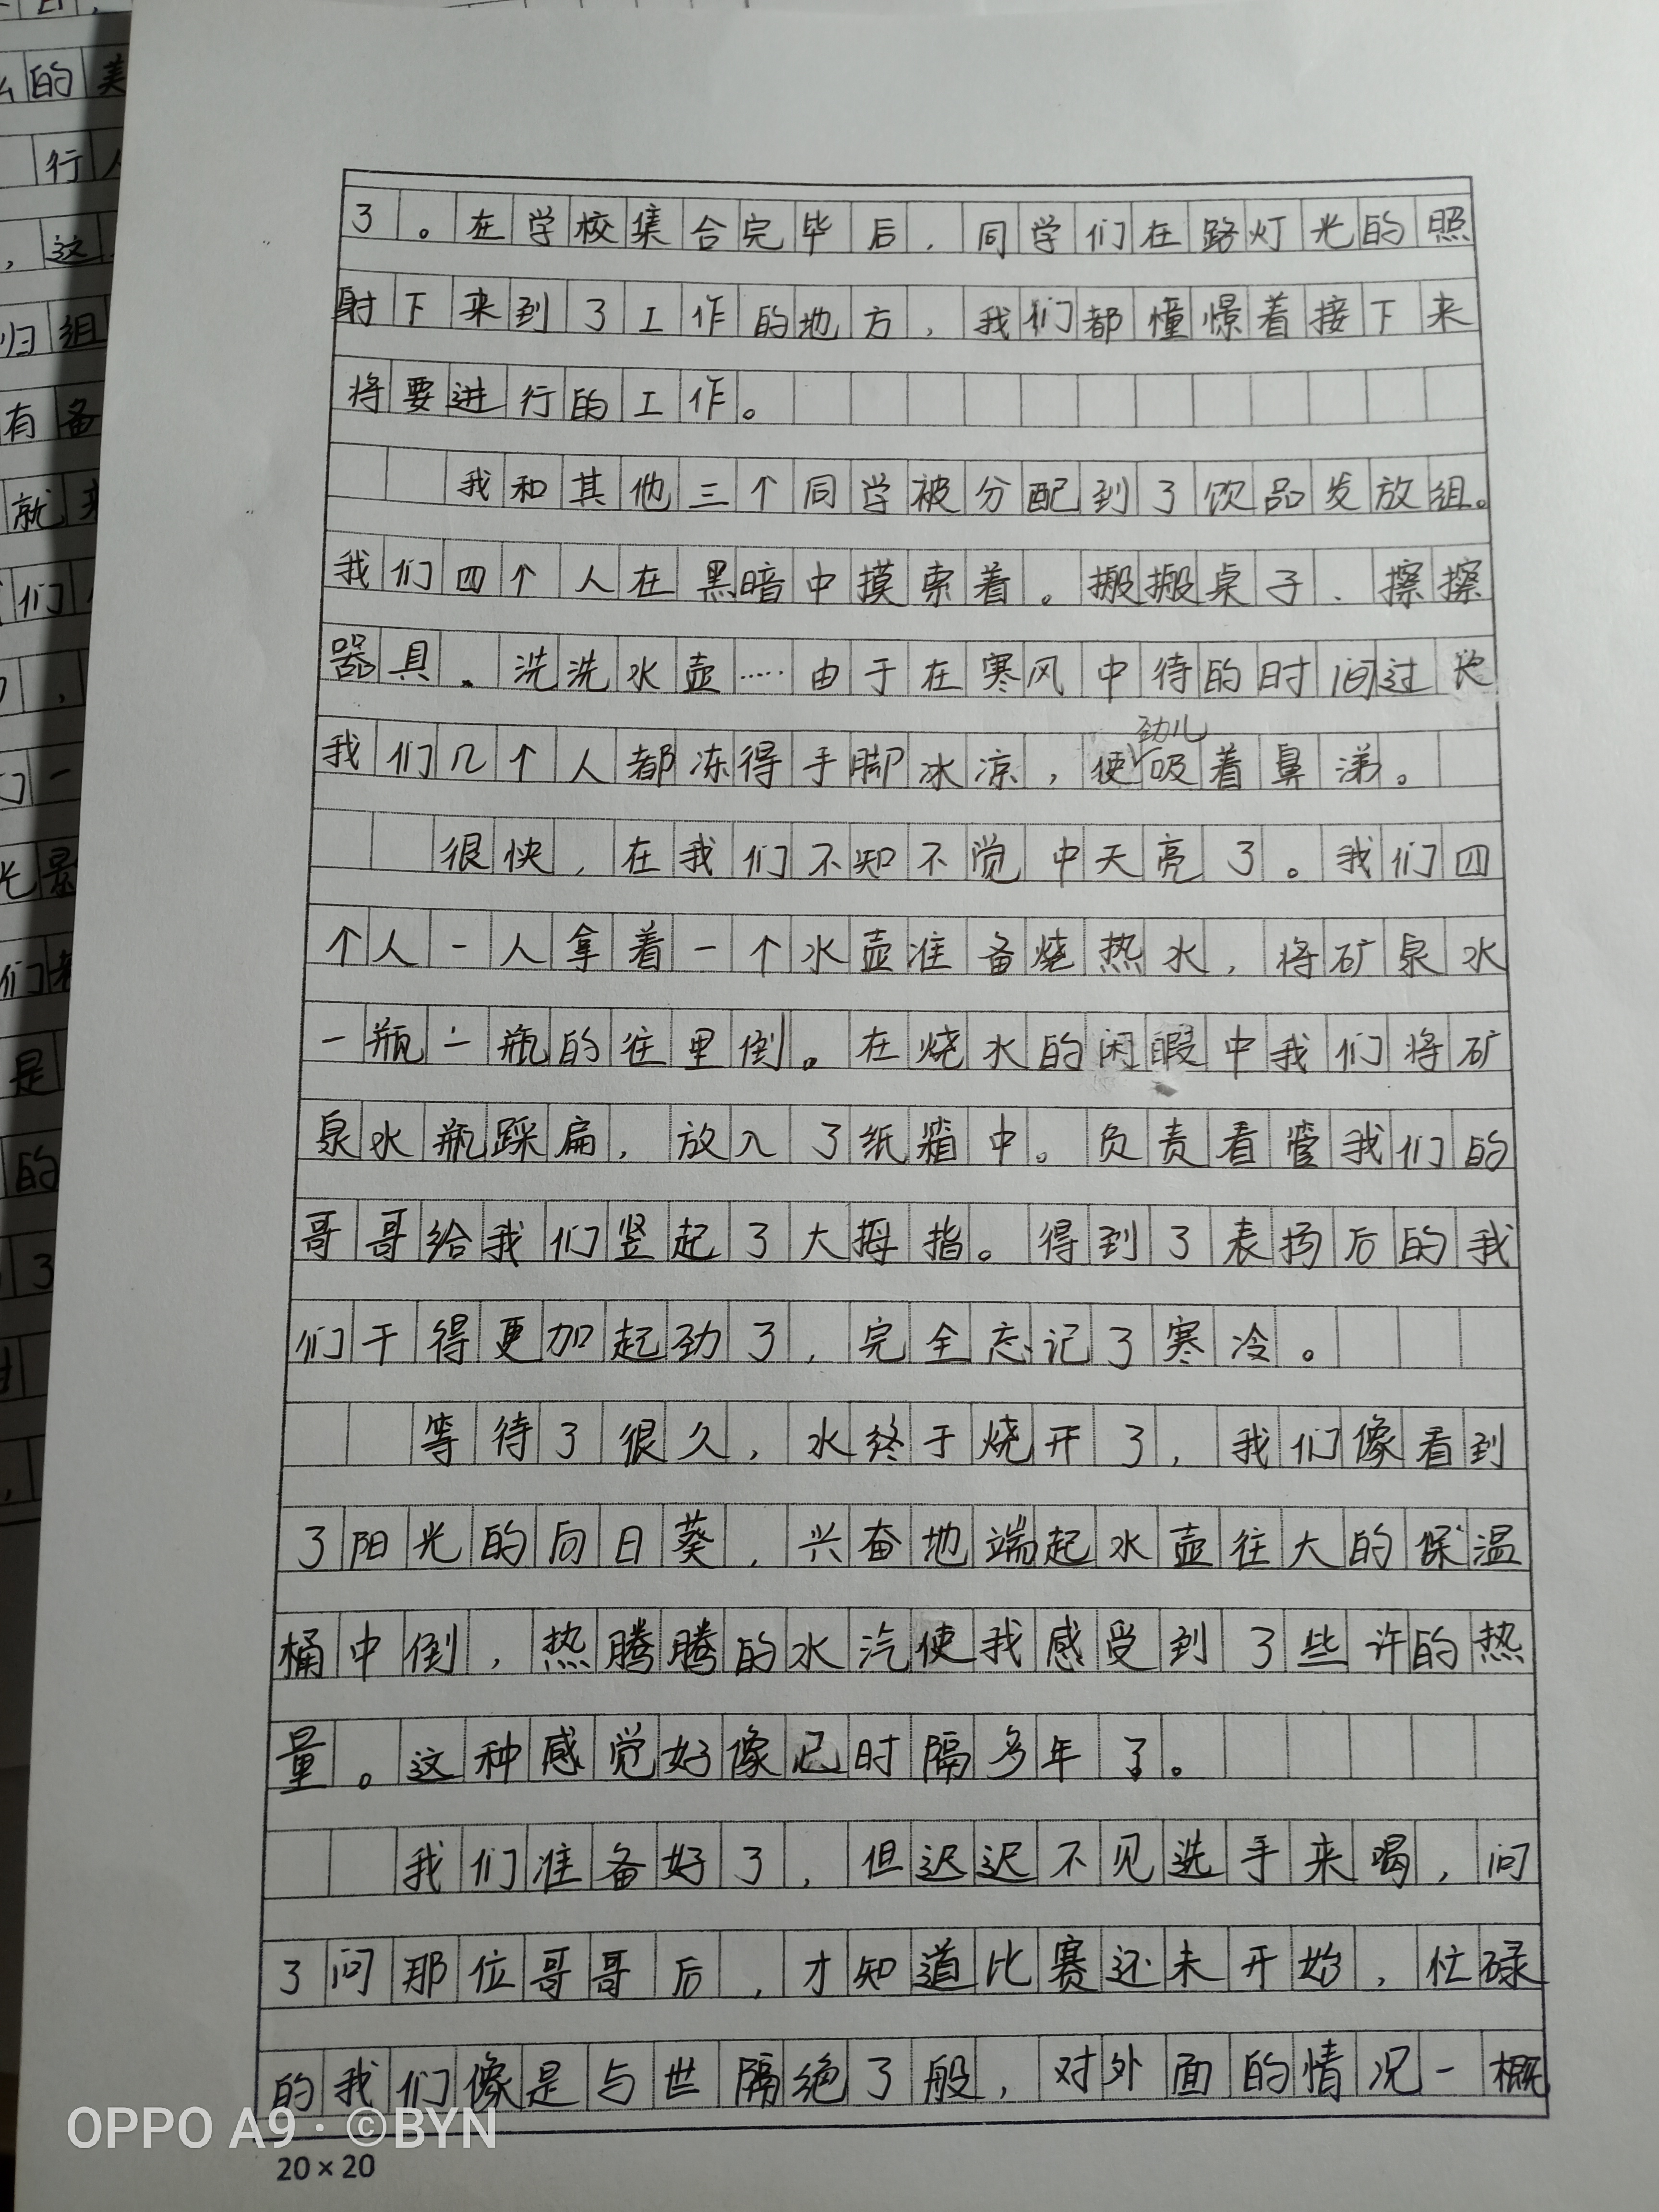 了。在学校集合完毕后，同学们在路灯光的照
射下来到了工作的地方，我们都憧憬着接下来
将要进行的工作。
我和其他三个同学被分配到了饮品发放组。
我们四个人在黑暗中摸索着。搬搬桌子、擦擦
器具、洗洗水壶……由于在寒风中待的时间过长
我们几个人都冻得手脚冰凉，使劲儿吸着鼻涕。
很快，在我们不知不觉中天亮了。我们四
个人一人拿着一个水壶准备烧热水，将矿泉水
一瓶一瓶的往里倒。在烧水的闲暇中我们将矿
泉水瓶踩扁，放入了纸箱中。负责看管我们的
哥哥给我们竖起了大拇指。得到了表扬后的我
们干得更加起劲了，完全忘记了寒冷。
等待了很久，水终于烧开了，我们像看到
了阳光的向日葵，兴奋地端起水壶往大的保温
桶中倒，热腾腾的水汽使我感受到了些许的热
量。这种感觉好像已时隔多年了。
我们准备好了，但迟迟不见选手来喝，问
了问那位哥哥后，才知道比赛还未开始，忙碌
的我们像是与世隔绝了般，对外面的情况一概
OPPO A9 · ©BYN
20×20